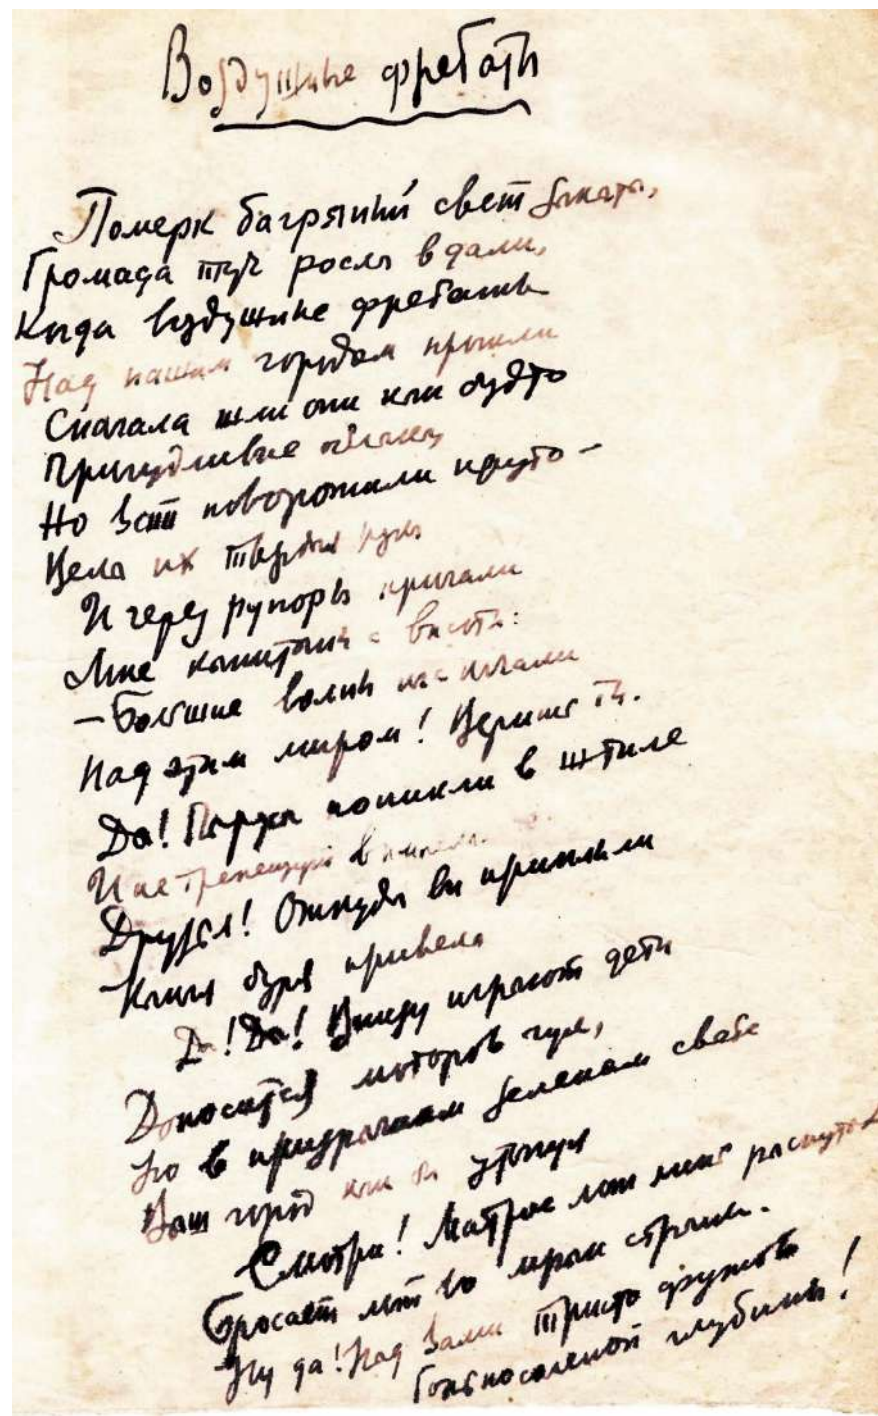 Воздушные фрегаты
Померк багряный свет заката,
Громада туч росла вдали,
Когда воздушные фрегаты
Над нашим городом прошли
Сначала шли они как будто
Причудливые облака,
Но вот поворотили круто –
Вела их твердая рука
И через рупоры кричали
Мне капитаны с высоты:
– Большие волны нас качали
Над этим миром! Веришь ты.
Да! Паруса поникли в штиле
И не трепещут вымпела.
Друзья! Откуда вы приплыли
Какая буря привела
Да! Да! Внизу играют дети
Доносится моторов гул,
Но в призрачном зеленом свете
Ваш город как бы утонул
Смотри! Матрос лот распутав
Бросает лот во мрак страны.
Ну да! Над вами триста футов
Горькосоленой глубины!